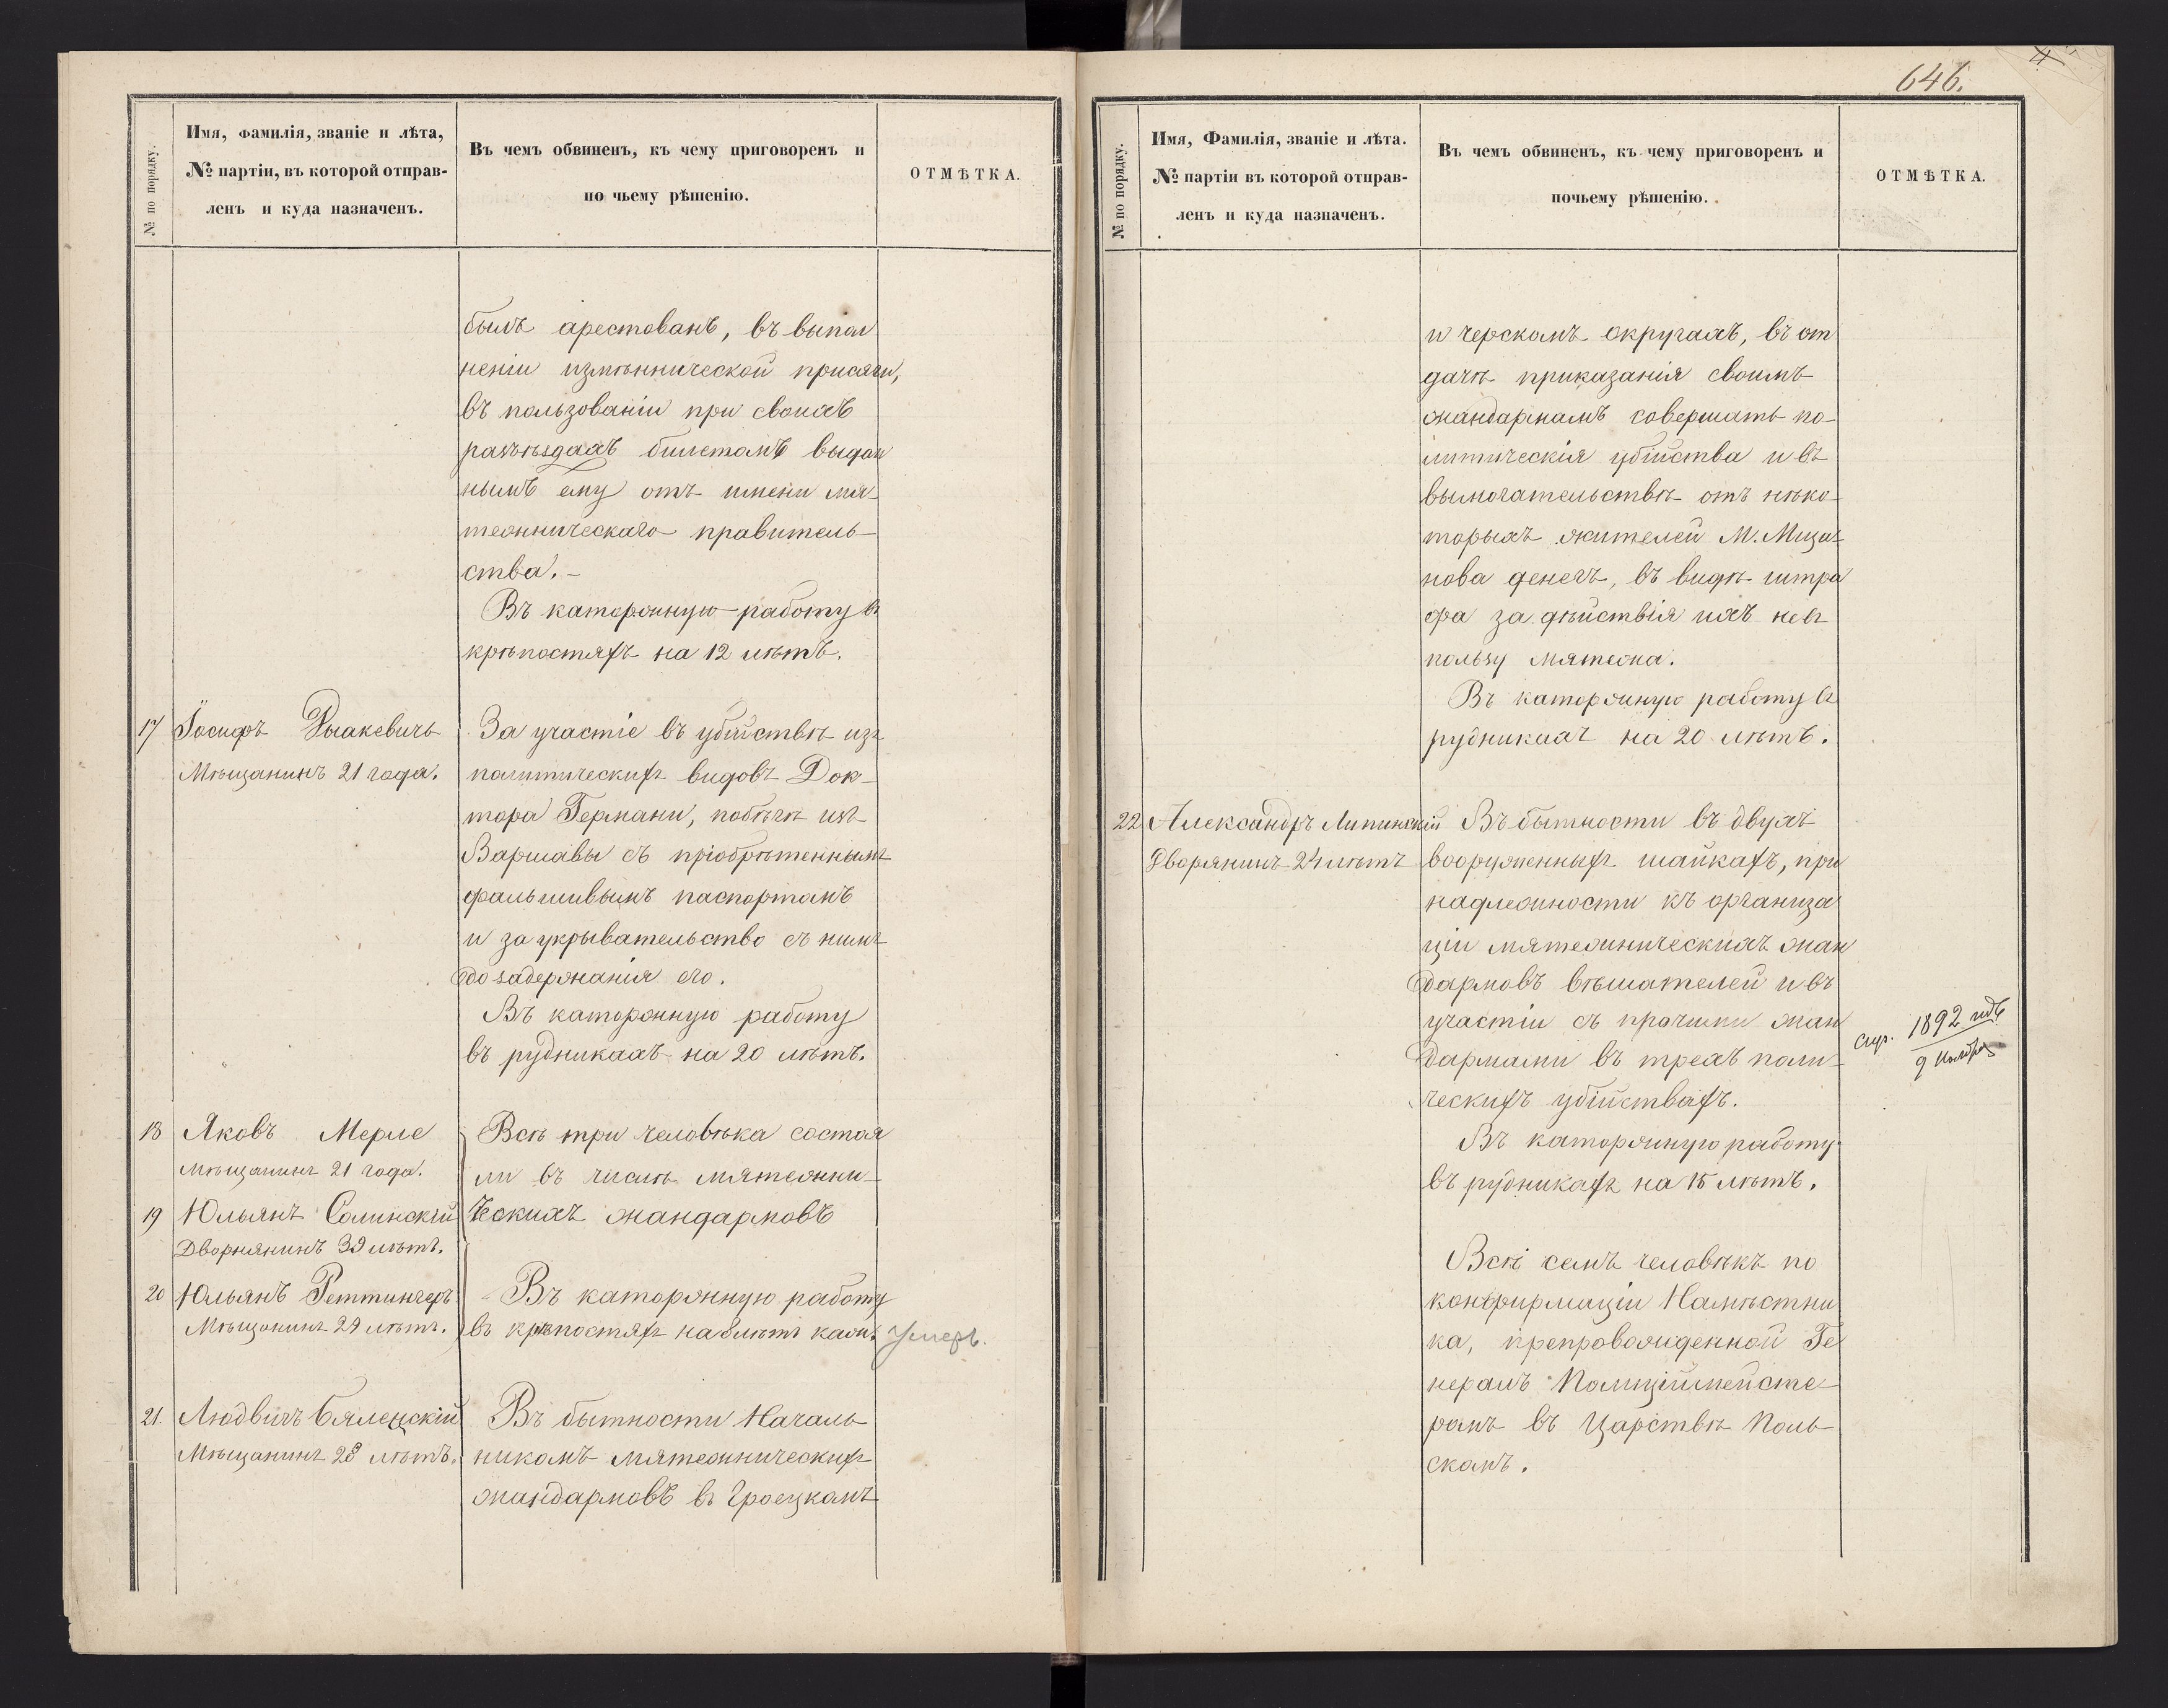 646.
№ по порядку.
Имя, Фамилія, званіе и лѣта,
№ партіи, въ которой отправ-
ленъ и куда назначенъ.
Въ чемъ обвиненъ, къ чему приговоренъ и
по чьему рѣшенію.
ОТМѢТКА.
былъ арестованъ, въ выпол
неніи измѣннической присяги,
въ пользованіи при своихъ
разъѣздахъ билетомъ выдан
нымъ ему отъ имени мя-
тежническаго правитель-
ства. -
Въ каторжную работу въ
крѣпостяхъ на 12 лѣтъ.
17 Іосифъ
Мѣщанинъ 21 года.
За участіе въ убійствѣ изъ
политическихъ видовъ Док-
тора Германи, побѣгѣ изъ
Варшавы съ пріобрѣтеннымъ
фальшивымъ паспортомъ
и за укрывательство съ нимъ
до задержанія его.
Въ каторжную работу
въ рудникахъ на 20 лѣтъ.
18 Яковъ Мерле
Мѣщанинъ 21 года.
19 Юльянъ Солинскій
Дворянинъ 39 лѣтъ.
20 Юльянъ Реттингеръ
Мѣщанинъ 29 лѣтъ.
Всѣ три человѣка состоя
ли въ числѣ мятежни-
ческихъ жандармовъ
Въ каторжную работу
въ крѣпостяхъ на 8 лѣтъ кажд.
Умеръ.
21. Людвигъ Бялецскій
Мѣщанинъ 28 лѣтъ.
Въ бытности Началь
никомъ мятежническихъ
жандармовъ въ Гроецкомъ
№ по порядку.
Имя, Фамилія, званіе и лѣта.
№ партіи въ которой отправ-
ленъ и куда назначенъ.
Въ чемъ обвиненъ, къ чему приговоренъ и
почьему рѣшенію.
ОТМѢТКА.
и Черскомъ округахъ, въ от
дачѣ приказанія своимъ
жандармамъ совершать по-
литическія убійства и въ
вымогательствѣ отъ нѣко-
торыхъ жителей М. Мщо-
нова денегъ, въ видѣ штра
фа за дѣйствія ихъ не въ
пользу мятежа.
Въ каторжную работу въ
рудникахъ на 20 лѣтъ.
22 Александръ Липинскій
Дворянинъ 24 лѣтъ
Въ бытности въ двухъ
вооруженныхъ шайкахъ, при
надлежности къ организа
ціи мятежническихъ жан
дармовъ вѣшателей и въ
участіи съ прочими жан
дармами въ трехъ поли-
ческихъ убійствахъ.
Въ каторжную работу
въ рудникахъ на 15 лѣтъ.
1892
9 Ноября
Всѣ семь человѣкъ по
конфирмаціи Намѣстни
ка, препровожденной Ге
нералъ Полиціймейсте-
ромъ въ Царствѣ Поль-
скомъ.